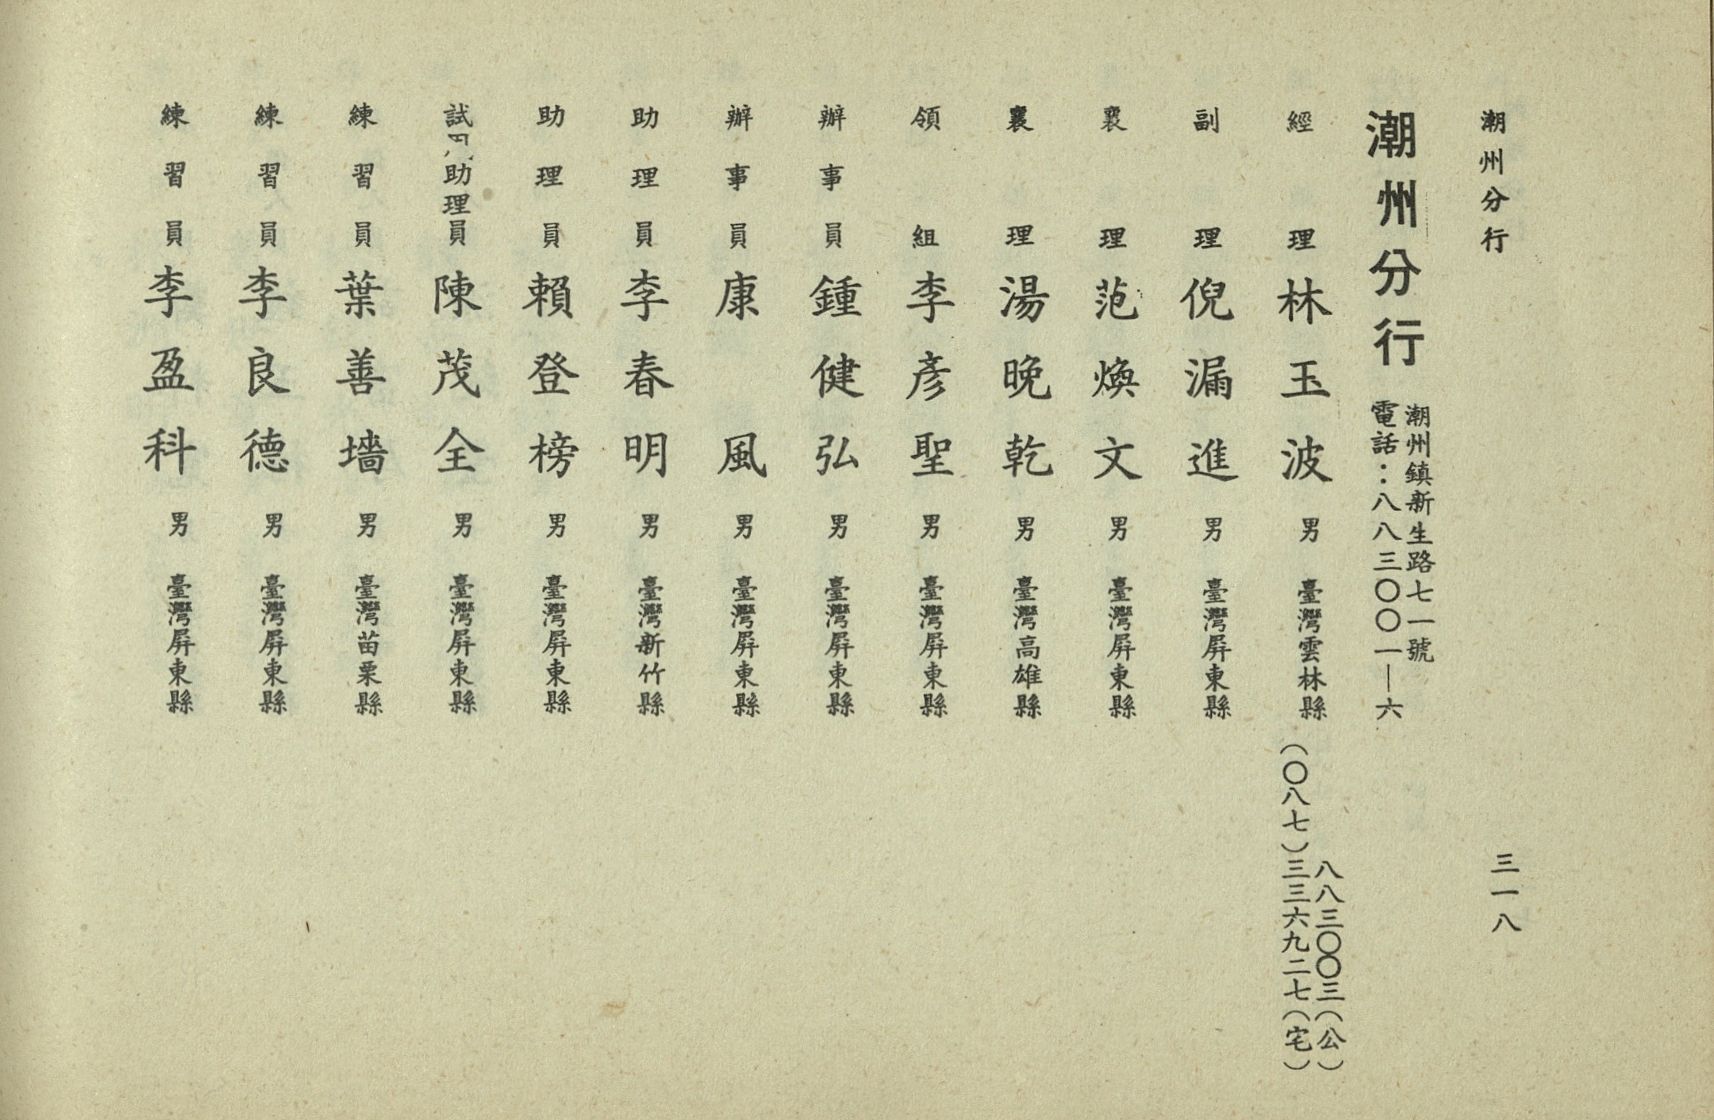 潮州分行
三一八
潮州分行
潮州鎮新生路七一號
電話：八八三〇〇一—六
經理 林玉波 男 臺灣雲林縣
八八三〇〇三（公）
（〇八七）三三六九二七（宅）
副理 倪漏進 男 臺灣屏東縣
襄理 范煥文 男 臺灣屏東縣
襄理 湯晚乾 男 臺灣高雄縣
領組 李彥聖 男 臺灣屏東縣
辦事員 鍾健弘 男 臺灣屏東縣
辦事員 康風 男 臺灣屏東縣
助理員 李春明 男 臺灣新竹縣
助理員 賴登榜 男 臺灣屏東縣
試用助理員 陳茂全 男 臺灣屏東縣
練習員 葉善墻 男 臺灣苗栗縣
練習員 李良德 男 臺灣屏東縣
練習員 李盈科 男 臺灣屏東縣